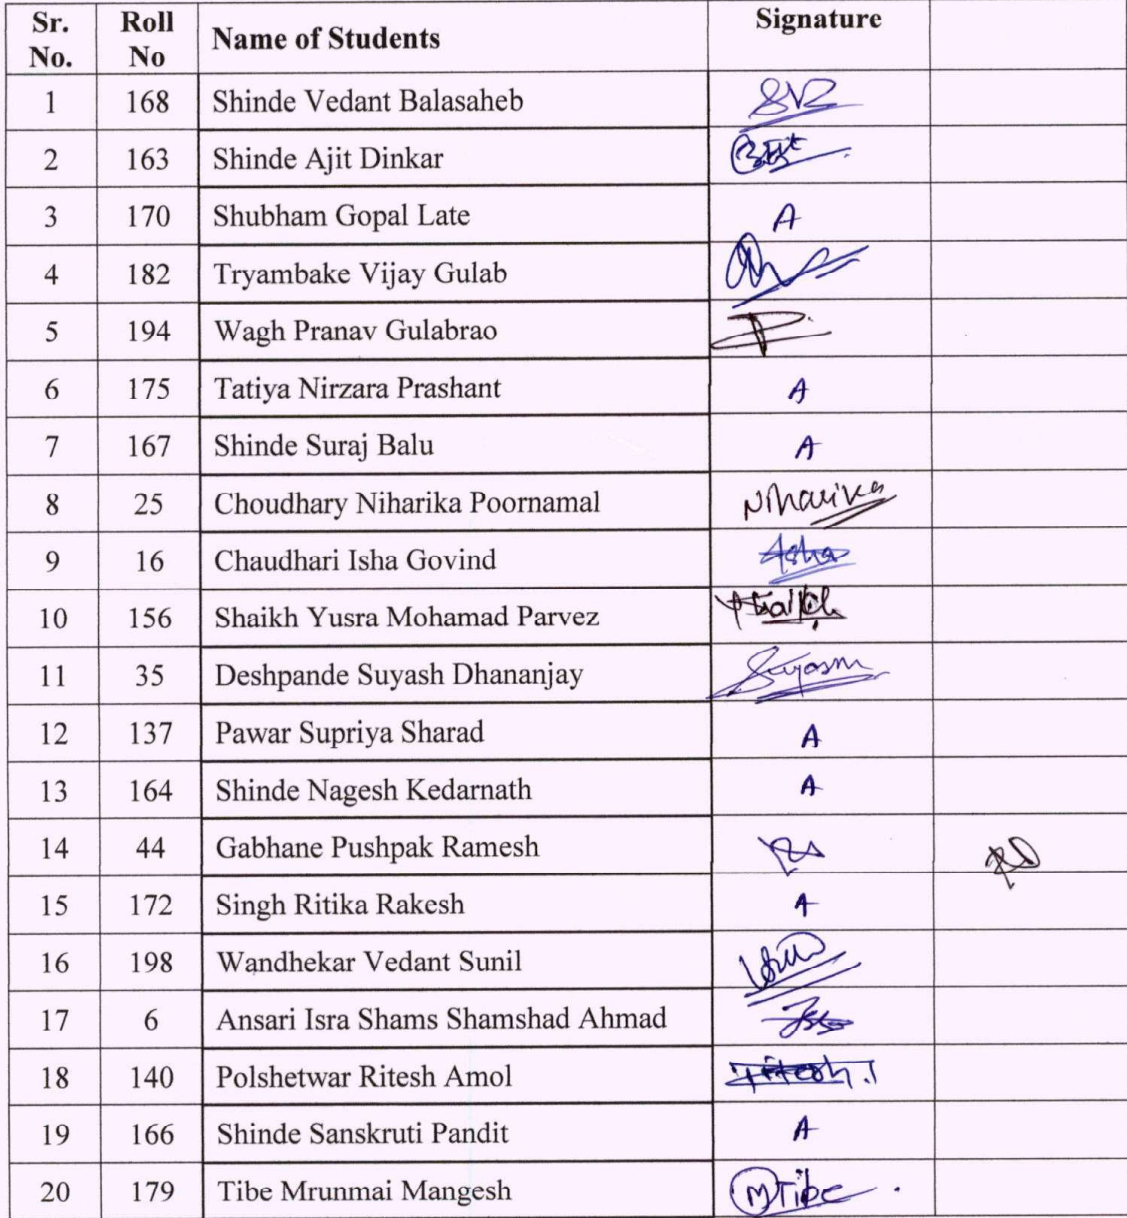 Sr. No. Roll No Name of Students Signature
1 168 Shinde Vedant Balasaheb SVB
2 163 Shinde Ajit Dinkar
3 170 Shubham Gopal Late A
4 182 Tryambake Vijay Gulab
5 194 Wagh Pranav Gulabrao
6 175 Tatiya Nirzara Prashant A
7 167 Shinde Suraj Balu A
8 25 Choudhary Niharika Poornamal Niharika
9 16 Chaudhari Isha Govind
10 156 Shaikh Yusra Mohamad Parvez
11 35 Deshpande Suyash Dhananjay Suyash
12 137 Pawar Supriya Sharad A
13 164 Shinde Nagesh Kedarnath A
14 44 Gabhane Pushpak Ramesh
15 172 Singh Ritika Rakesh A
16 198 Wandhekar Vedant Sunil
17 6 Ansari Isra Shams Shamshad Ahmad
18 140 Polshetwar Ritesh Amol Ritesh
19 166 Shinde Sanskruti Pandit A
20 179 Tibe Mrunmai Mangesh MTibe